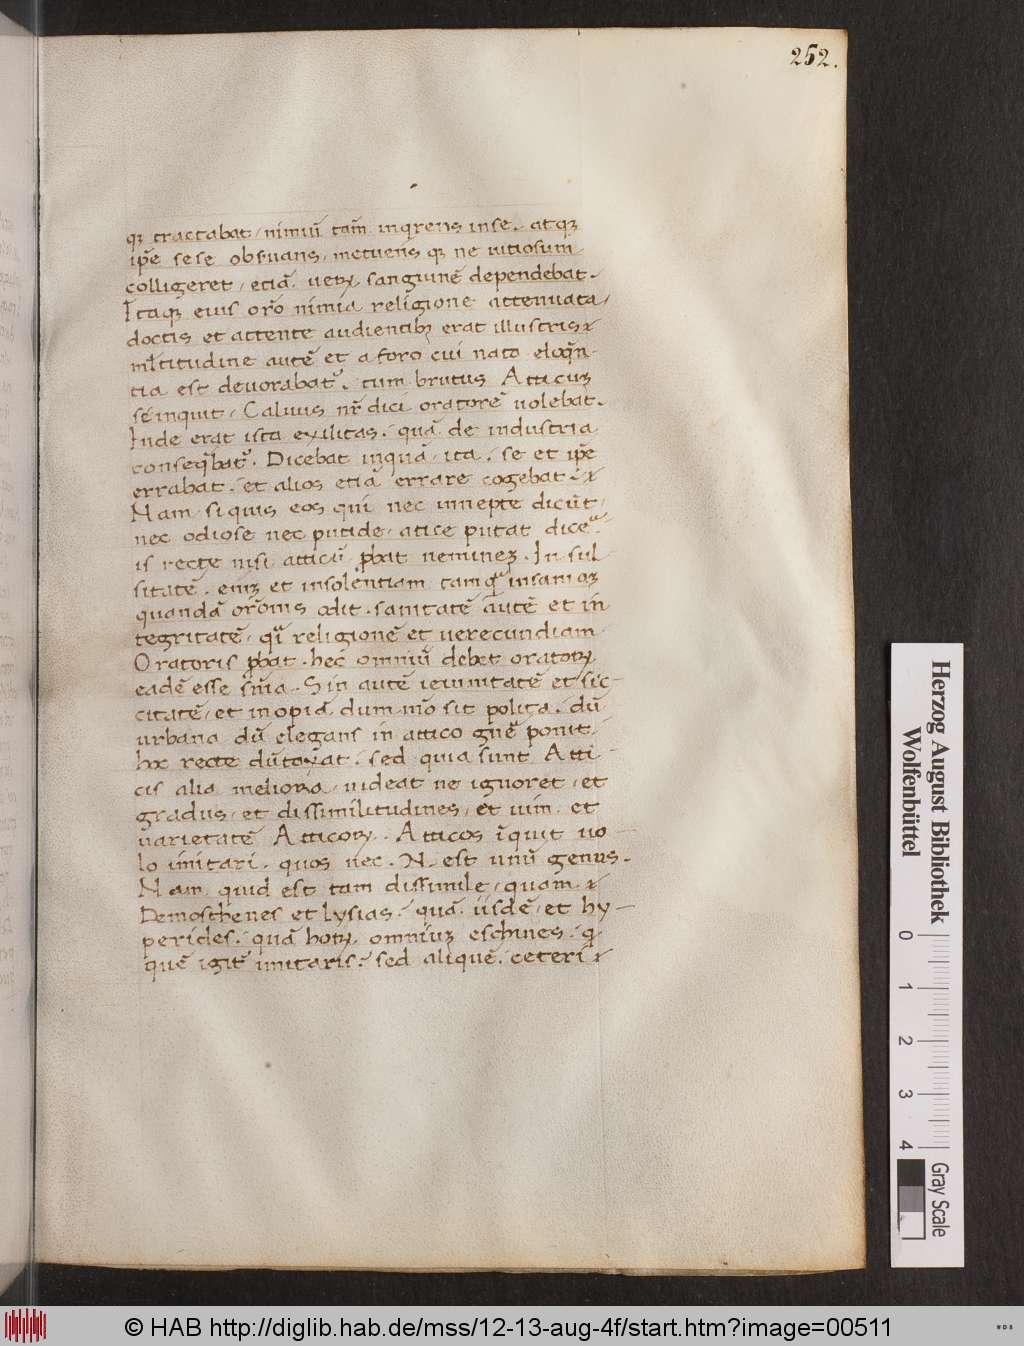 252.
qꝫ tractabat / nimiū tam̄ inqrens inse. atqꝫ
ip̄e sese obs̄uans / metuens qꝫ ne uitiosum
colligeret / etiā uerꝝ sanguinē dependebat.
Itaqꝫ eius orō nimia religione attenuata /
doctis et attente audientibꝫ erat illustris
ml̄titudine autē et a foro cui nata eloq̄n-
tia est deuorabat᷒. tum brutus Atticuꝫ
sē inquit / Caluus nr̄ dici oratorē uolebat.
Inde erat ista exilitas. quā de industria
conseq̄bat᷒. Dicebat inquā. ita. se et ip̄e
errabat. et alios etiā errare cogebat.
Nam si quis eos qui nec innepte dicūt /
nec odiose nec putide / atice putat dice
is recte nisi atticū ꝓbat nemineꝫ. In sul
sitatē. eniꝫ et insolentiam tamqͣ insaniaꝫ
quandā orōnis odit. sanitatē autē et in
tegritatē / qͣ religionē et uerecundiam
Oratoris ꝓbat. hec omniū debet oratorꝝ
eadē esse sn̄ia. Sin autē ieiunitatē et sic-
citatē / et inopiā dum mō sit polita. dū
urbana dū elegans in attico gn̄e ponit.
hoc recte dūtaxat. sed quia sunt Atti-
cis alia meliora / uideat ne ignoret / et
gradus / et dissimilitudines / et uim et
uarietatē Atticorꝝ. Atticos īquit uo-
lo imitari. quos nec. N. est unū genus.
Nam quid est tam dissimile / quam
Demosthenes et lysias. quā iisdē et hy-
perides. quā horꝝ omniuꝫ eschines.
quē igit᷒ imitaris. sed aliquē. ceteri
Herzog August Bibliothek
Wolfenbüttel
0 1 2 3 4
Gray Scale
© HAB http://diglib.hab.de/mss/12-13-aug-4f/start.htm?image=00511